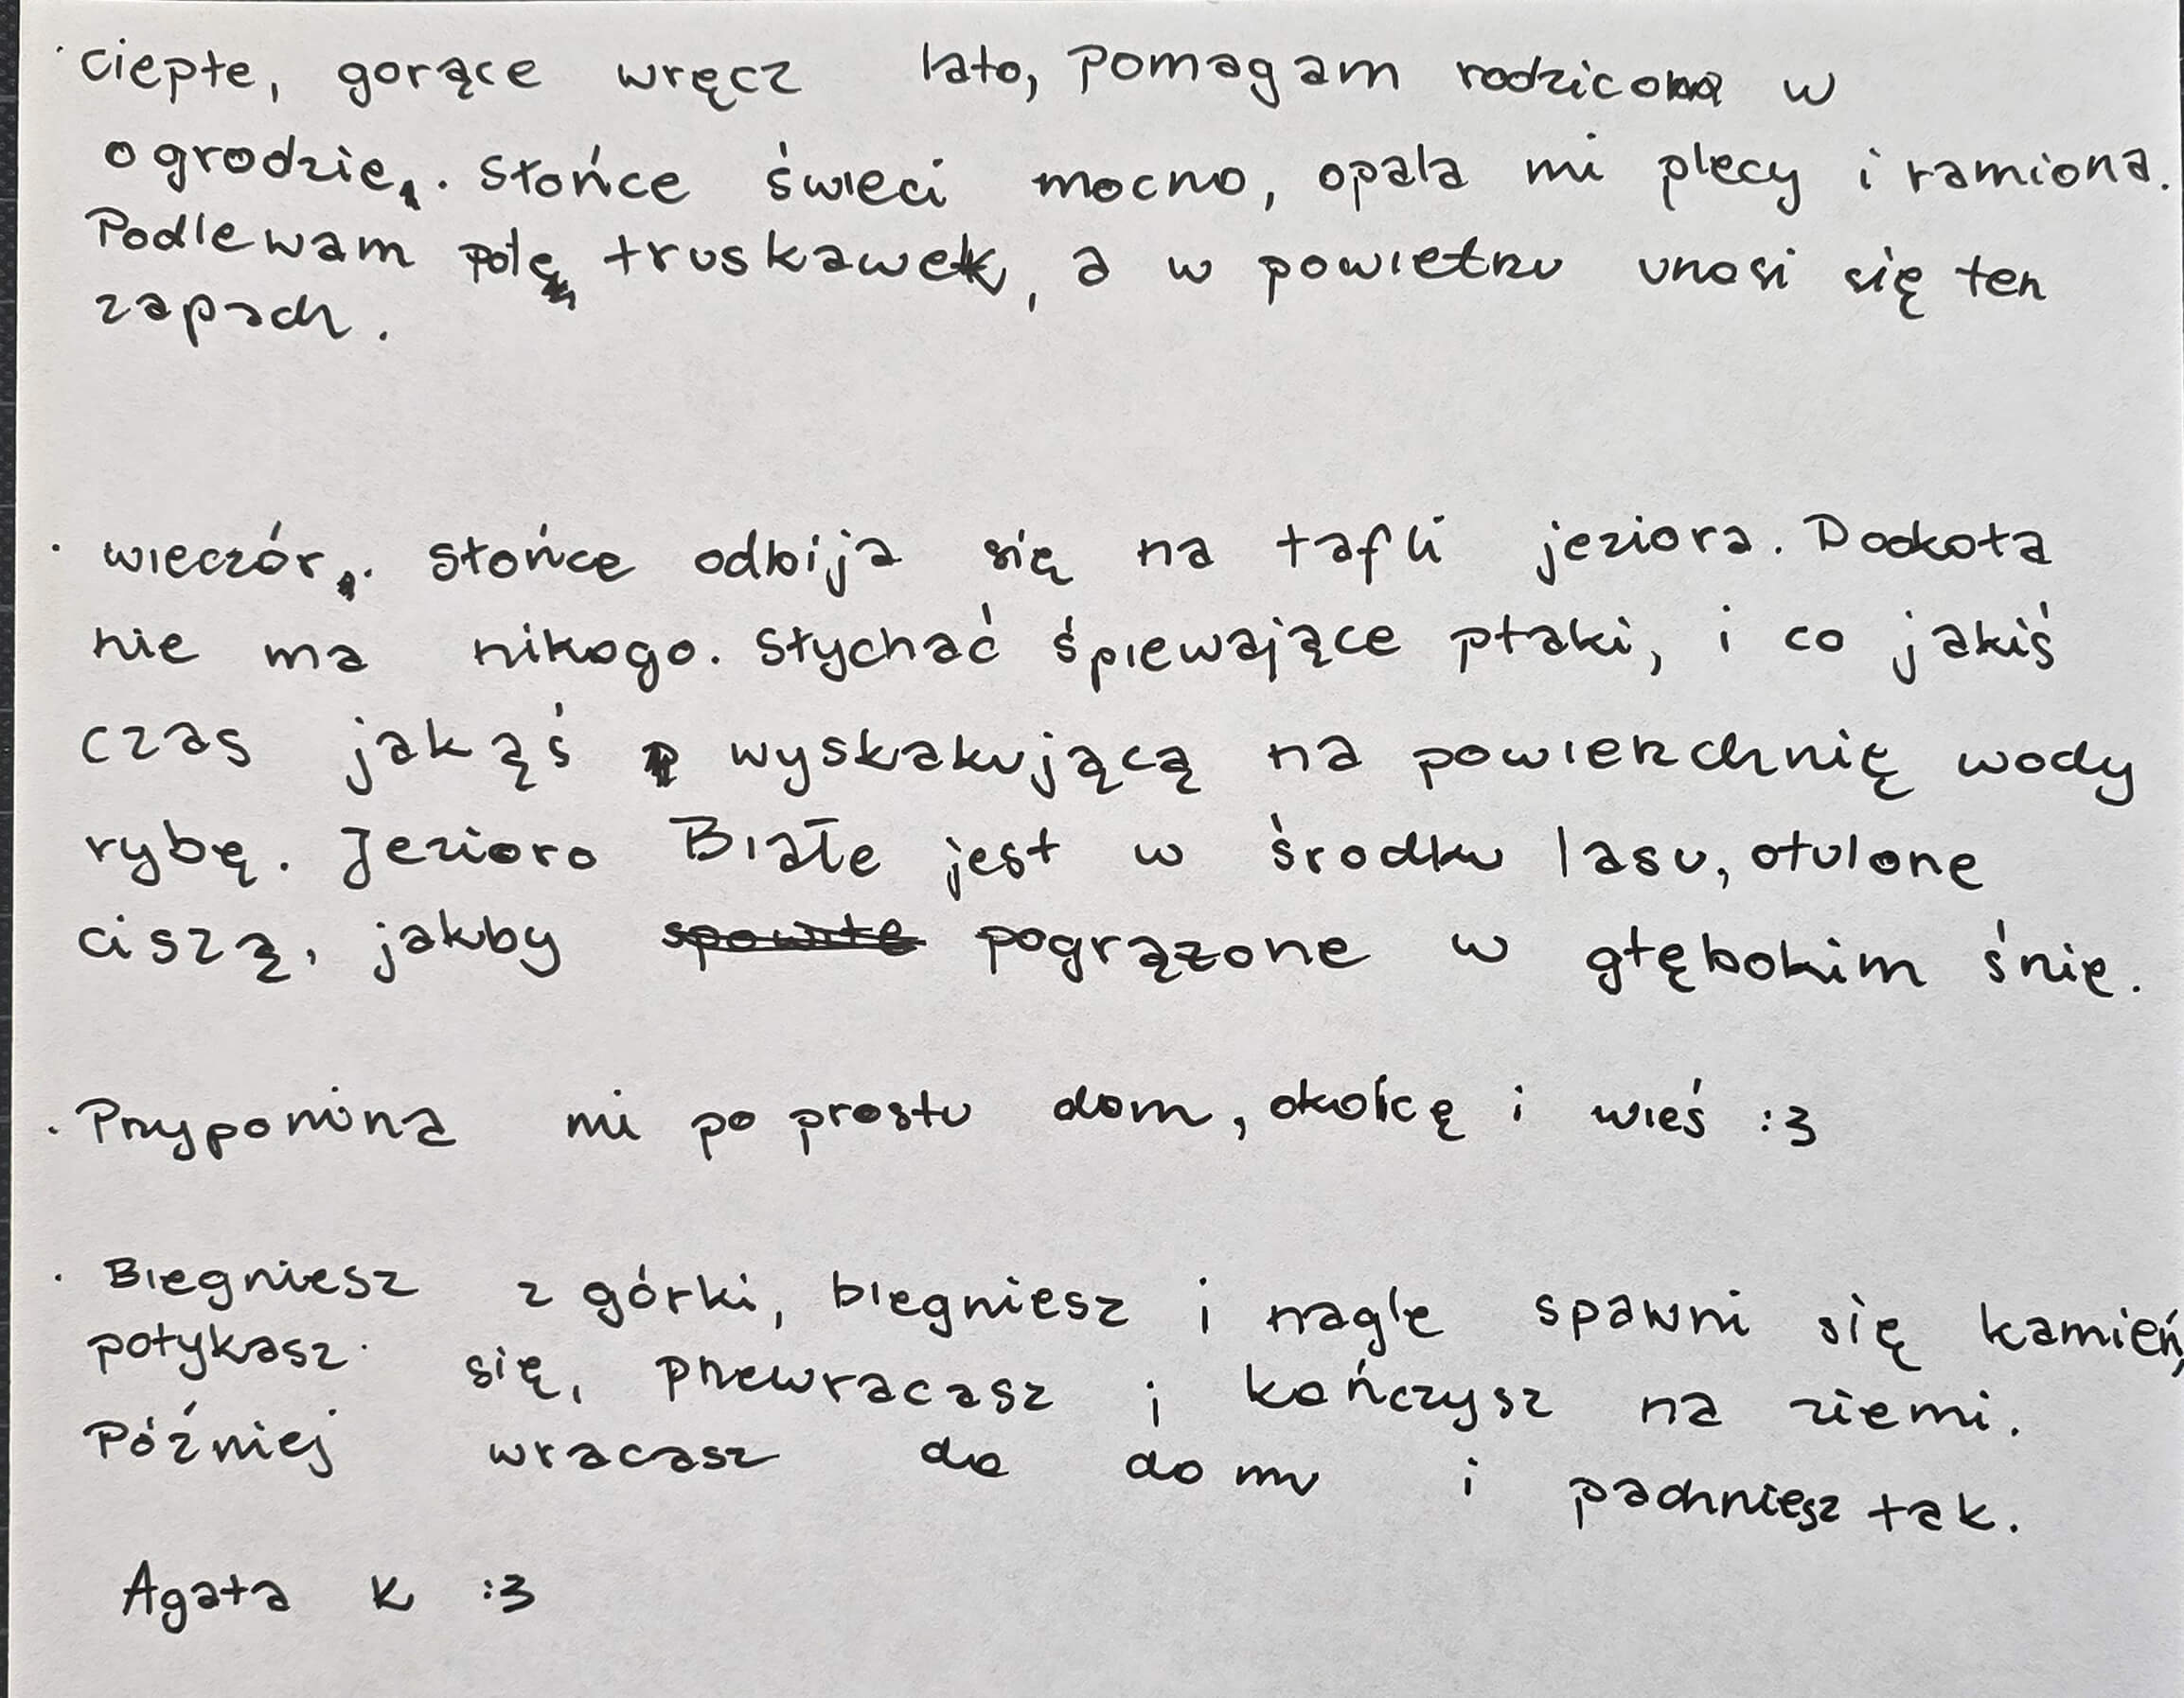 · ciepłe, gorące wręcz lato, pomagam rodzicom w
ogrodzie. Słońce świeci mocno, opala mi plecy i ramiona.
Podlewam pole truskawek, a w powietrzu unosi się ten
zapach.
· wieczór. Słońce odbija się na tafli jeziora. Dookoła
nie ma nikogo. Słychać śpiewające ptaki, i co jakiś
czas jakąś wyskakującą na powierzchnię wody
rybę. Jezioro Białe jest w środku lasu, otulone
ciszą, jakby spowite pogrążone w głębokim śnie.
· Przypomina mi po prostu dom, okolicę i wieś :3
· Biegniesz z górki, biegniesz i nagle spawni się kamień,
potykasz się, przewracasz i kończysz na ziemi.
Później wracasz do domu i pachniesz tak.
Agata K :3